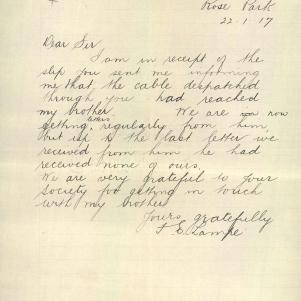 Rose Park
22.1.17
Dear Sir
I am in receipt of the
slip you sent me informing
me that, the cable despatched
through you had reached
my brother. We are now
getting, letters regularly from him,
but up to the last letter we
received from him he had
received none of ours.
We are very grateful to your
Society for getting in touch
with my brother
Yours gratefully
F E Lampe